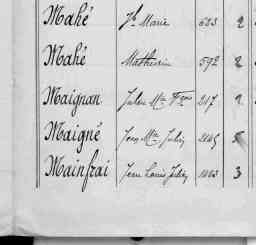 Mahé Jh Marie 523 2
Mahé Mathurin 592 2
Maignan Julien Mie Fçois 217 2
Maigné Jean Mie Julien
Mainfrai Jean Louis Julien 3